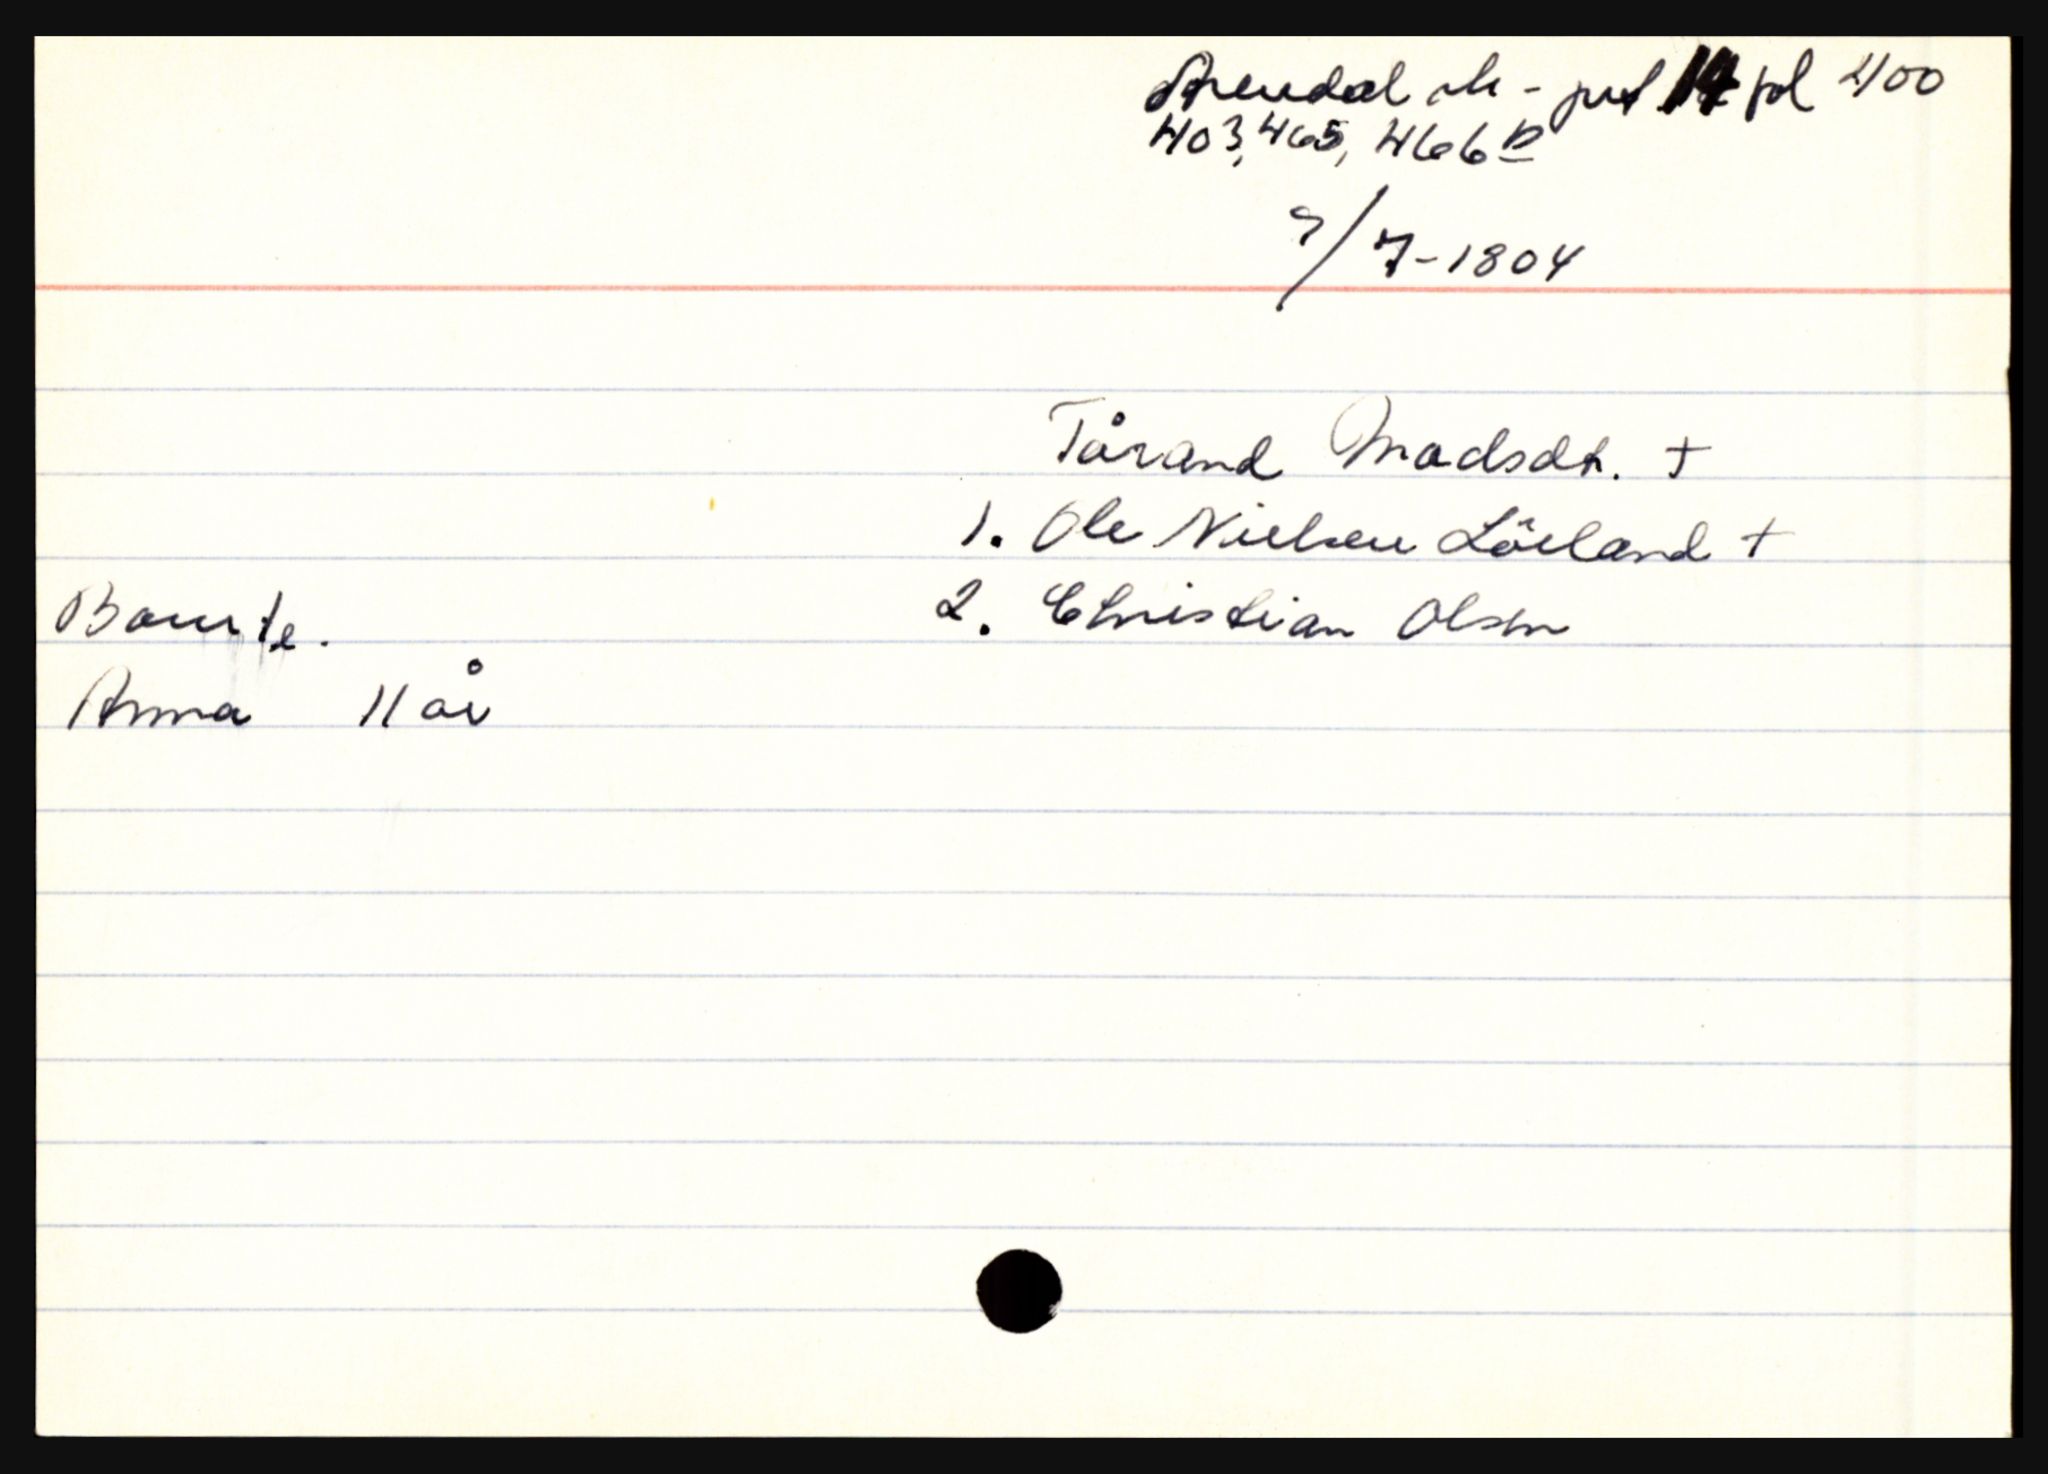 Arendal sk - prot 14 fol 400
403, 465, 466 b
9/7-1804
Tårand Madsdt. +
1. Ole Nielsen Löeland +
2. Christian Olsen
Barn
Anna 11 år